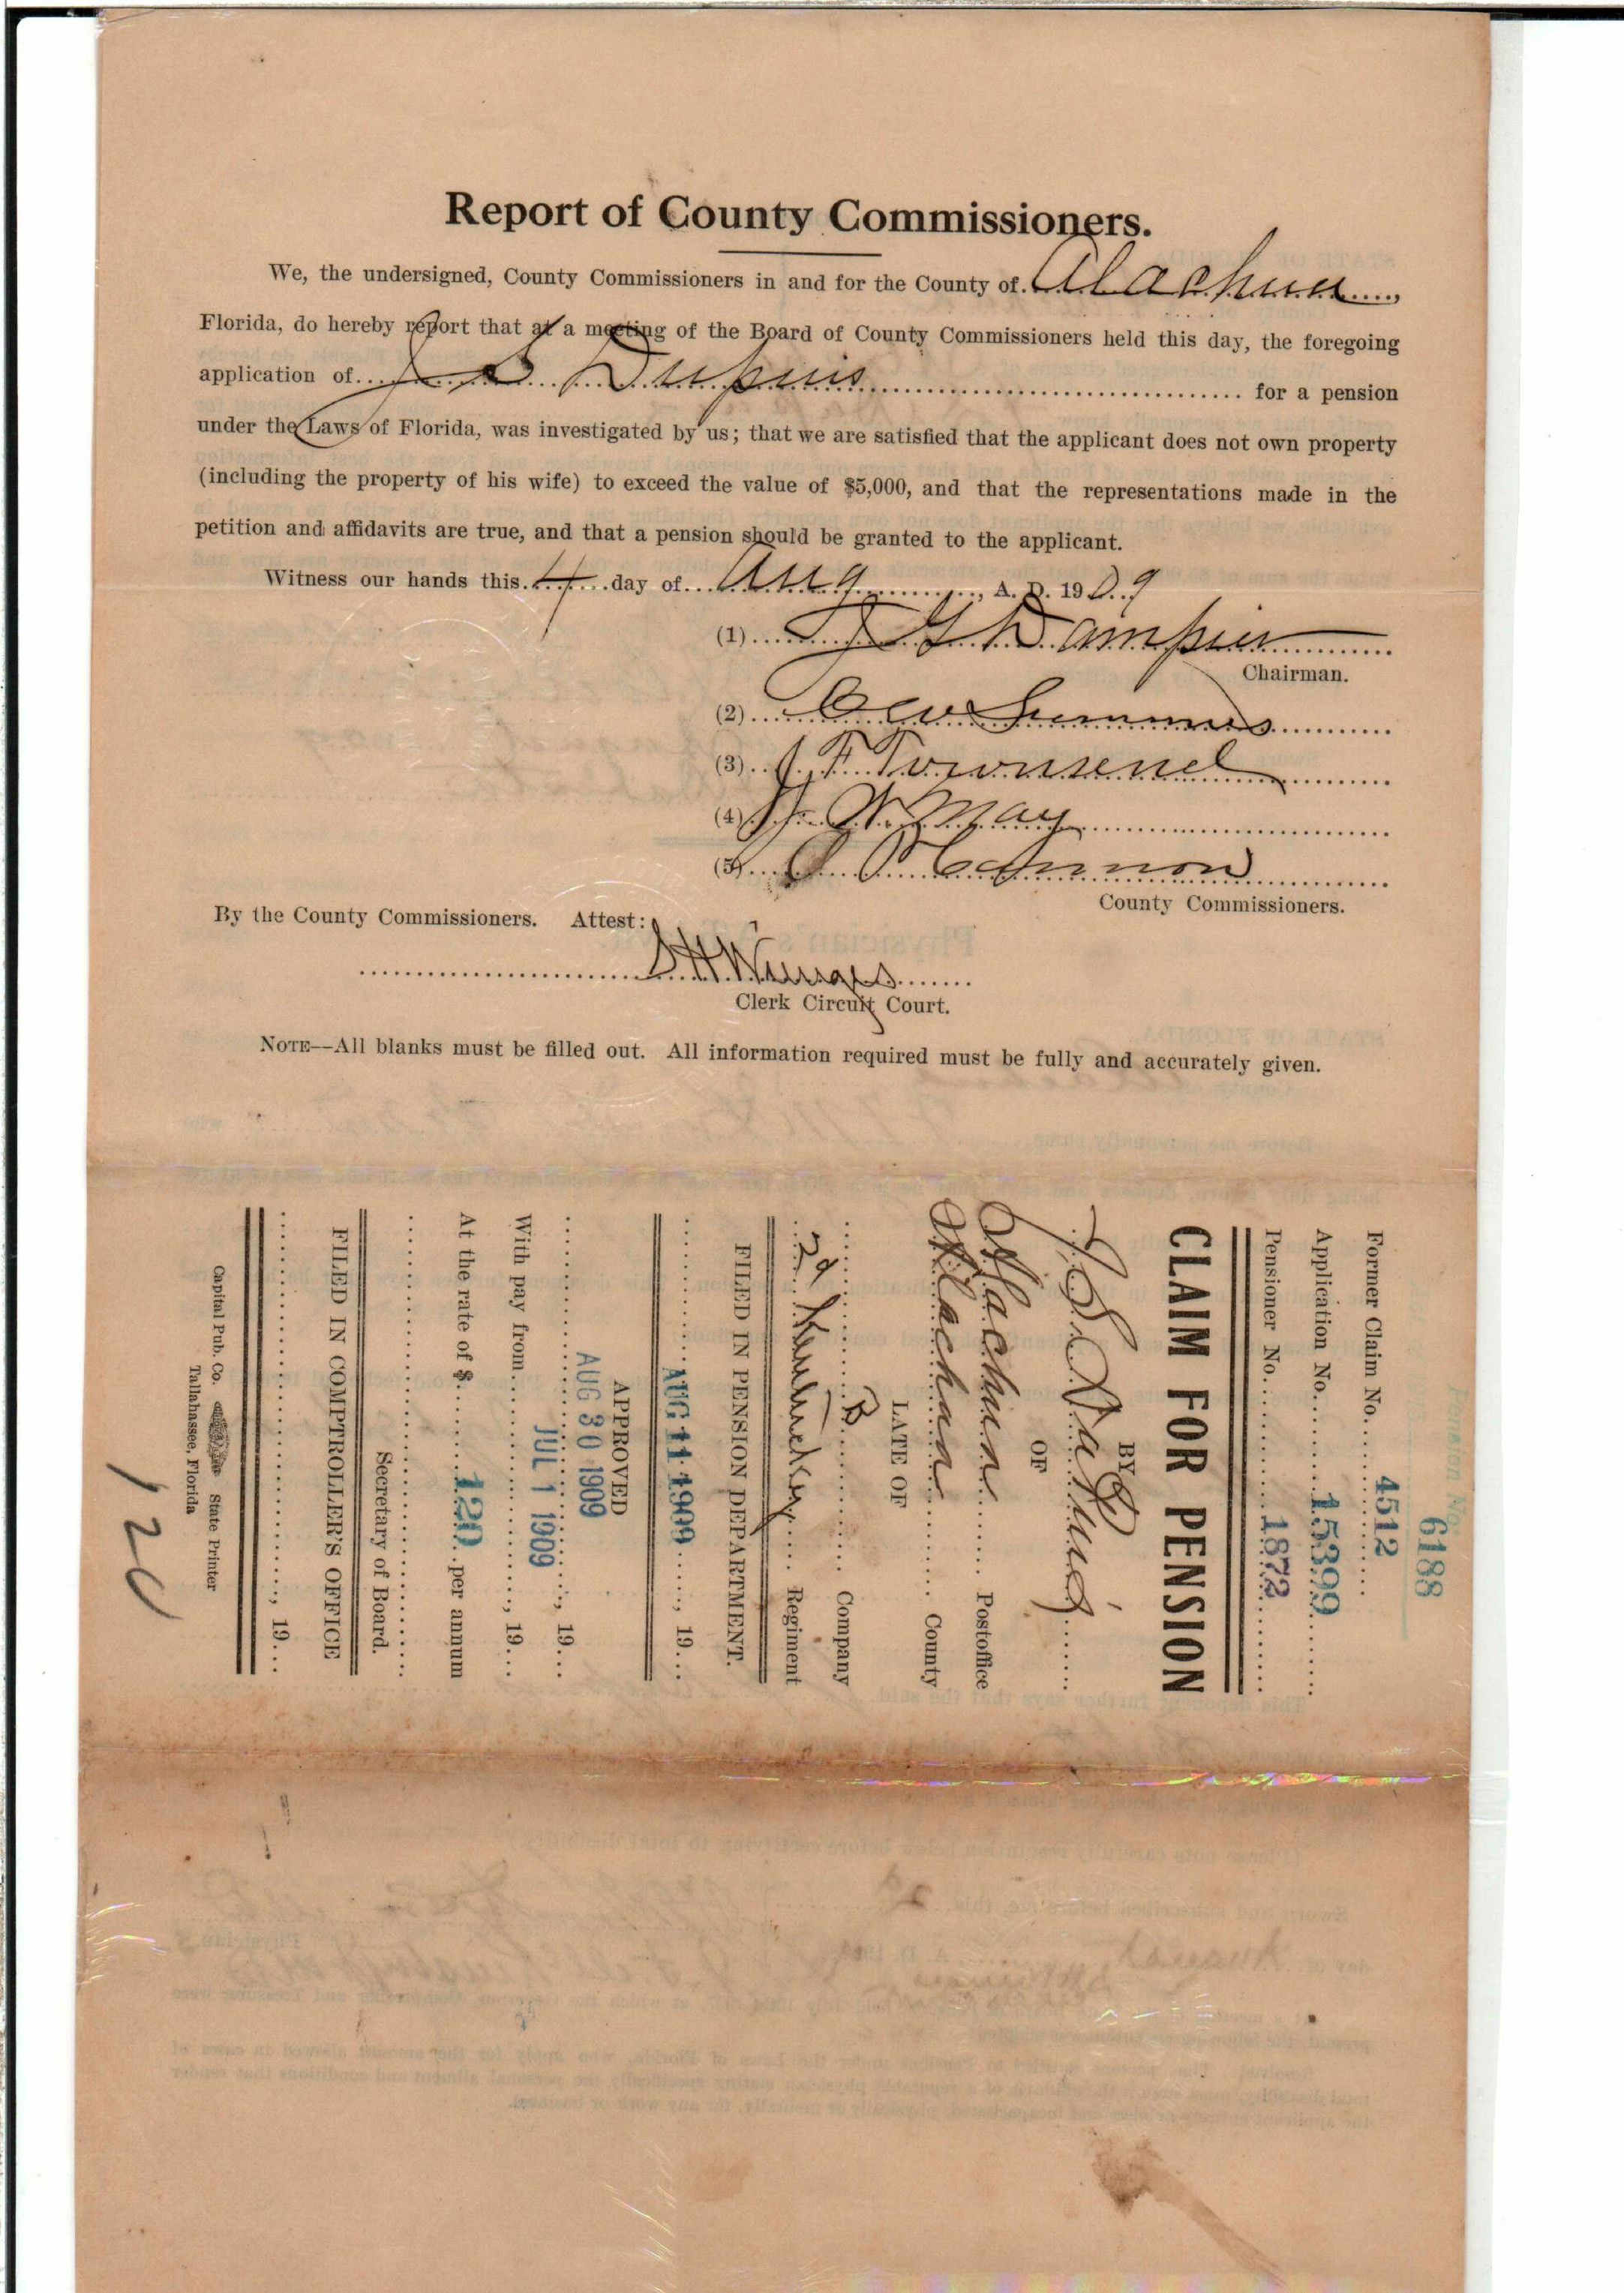 Report of County Commissioners.
We, the undersigned, County Commissioners in and for the County of Alachua,
Florida, do hereby report that at a meeting of the Board of County Commissioners held this day, the foregoing
application of J S Dupuis for a pension
under the Laws of Florida, was investigated by us; that we are satisfied that the applicant does not own property
(including the property of his wife) to exceed the value of $5,000, and that the representations made in the
petition and affidavits are true, and that a pension should be granted to the applicant.
Witness our hands this 4 day of Aug, A. D. 1909
(1) J G Dampier
Chairman.
(2) C W Summers
(3) J. F. Townsend
(4) W. May
(5) Cannon
County Commissioners.
By the County Commissioners. Attest:
S H Wienges
Clerk Circuit Court.
NOTE—All blanks must be filled out. All information required must be fully and accurately given.
Pension No.
6188
Former Claim No. 4512
Application No. 15399
Pensioner No. 1872
CLAIM FOR PENSION
BY
J. S. Dupuis
OF
Alachua Postoffice
Alachua County
LATE OF
B Company
2d Kentucky Regiment
FILED IN PENSION DEPARTMENT.
AUG 11 1909, 19
APPROVED
AUG 30 1909, 19
With pay from JUL 1 1909, 19
At the rate of $ 120 per annum
Secretary of Board.
FILED IN COMPTROLLER'S OFFICE
, 19
Capital Pub. Co. State Printer
Tallahassee, Florida
120